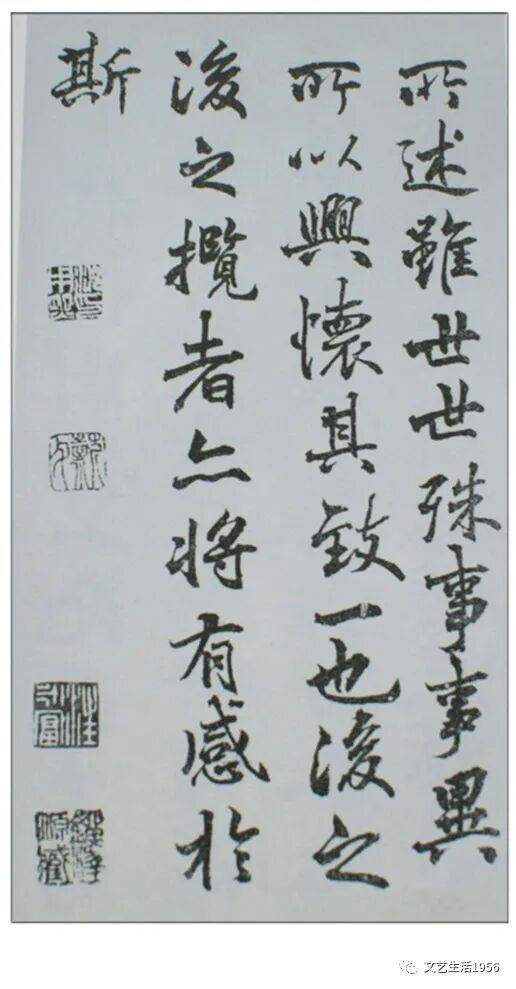 所述雖世世殊事事異
所以興懷其致一也後之
後之攬者亦將有感於
斯
文艺生活1956